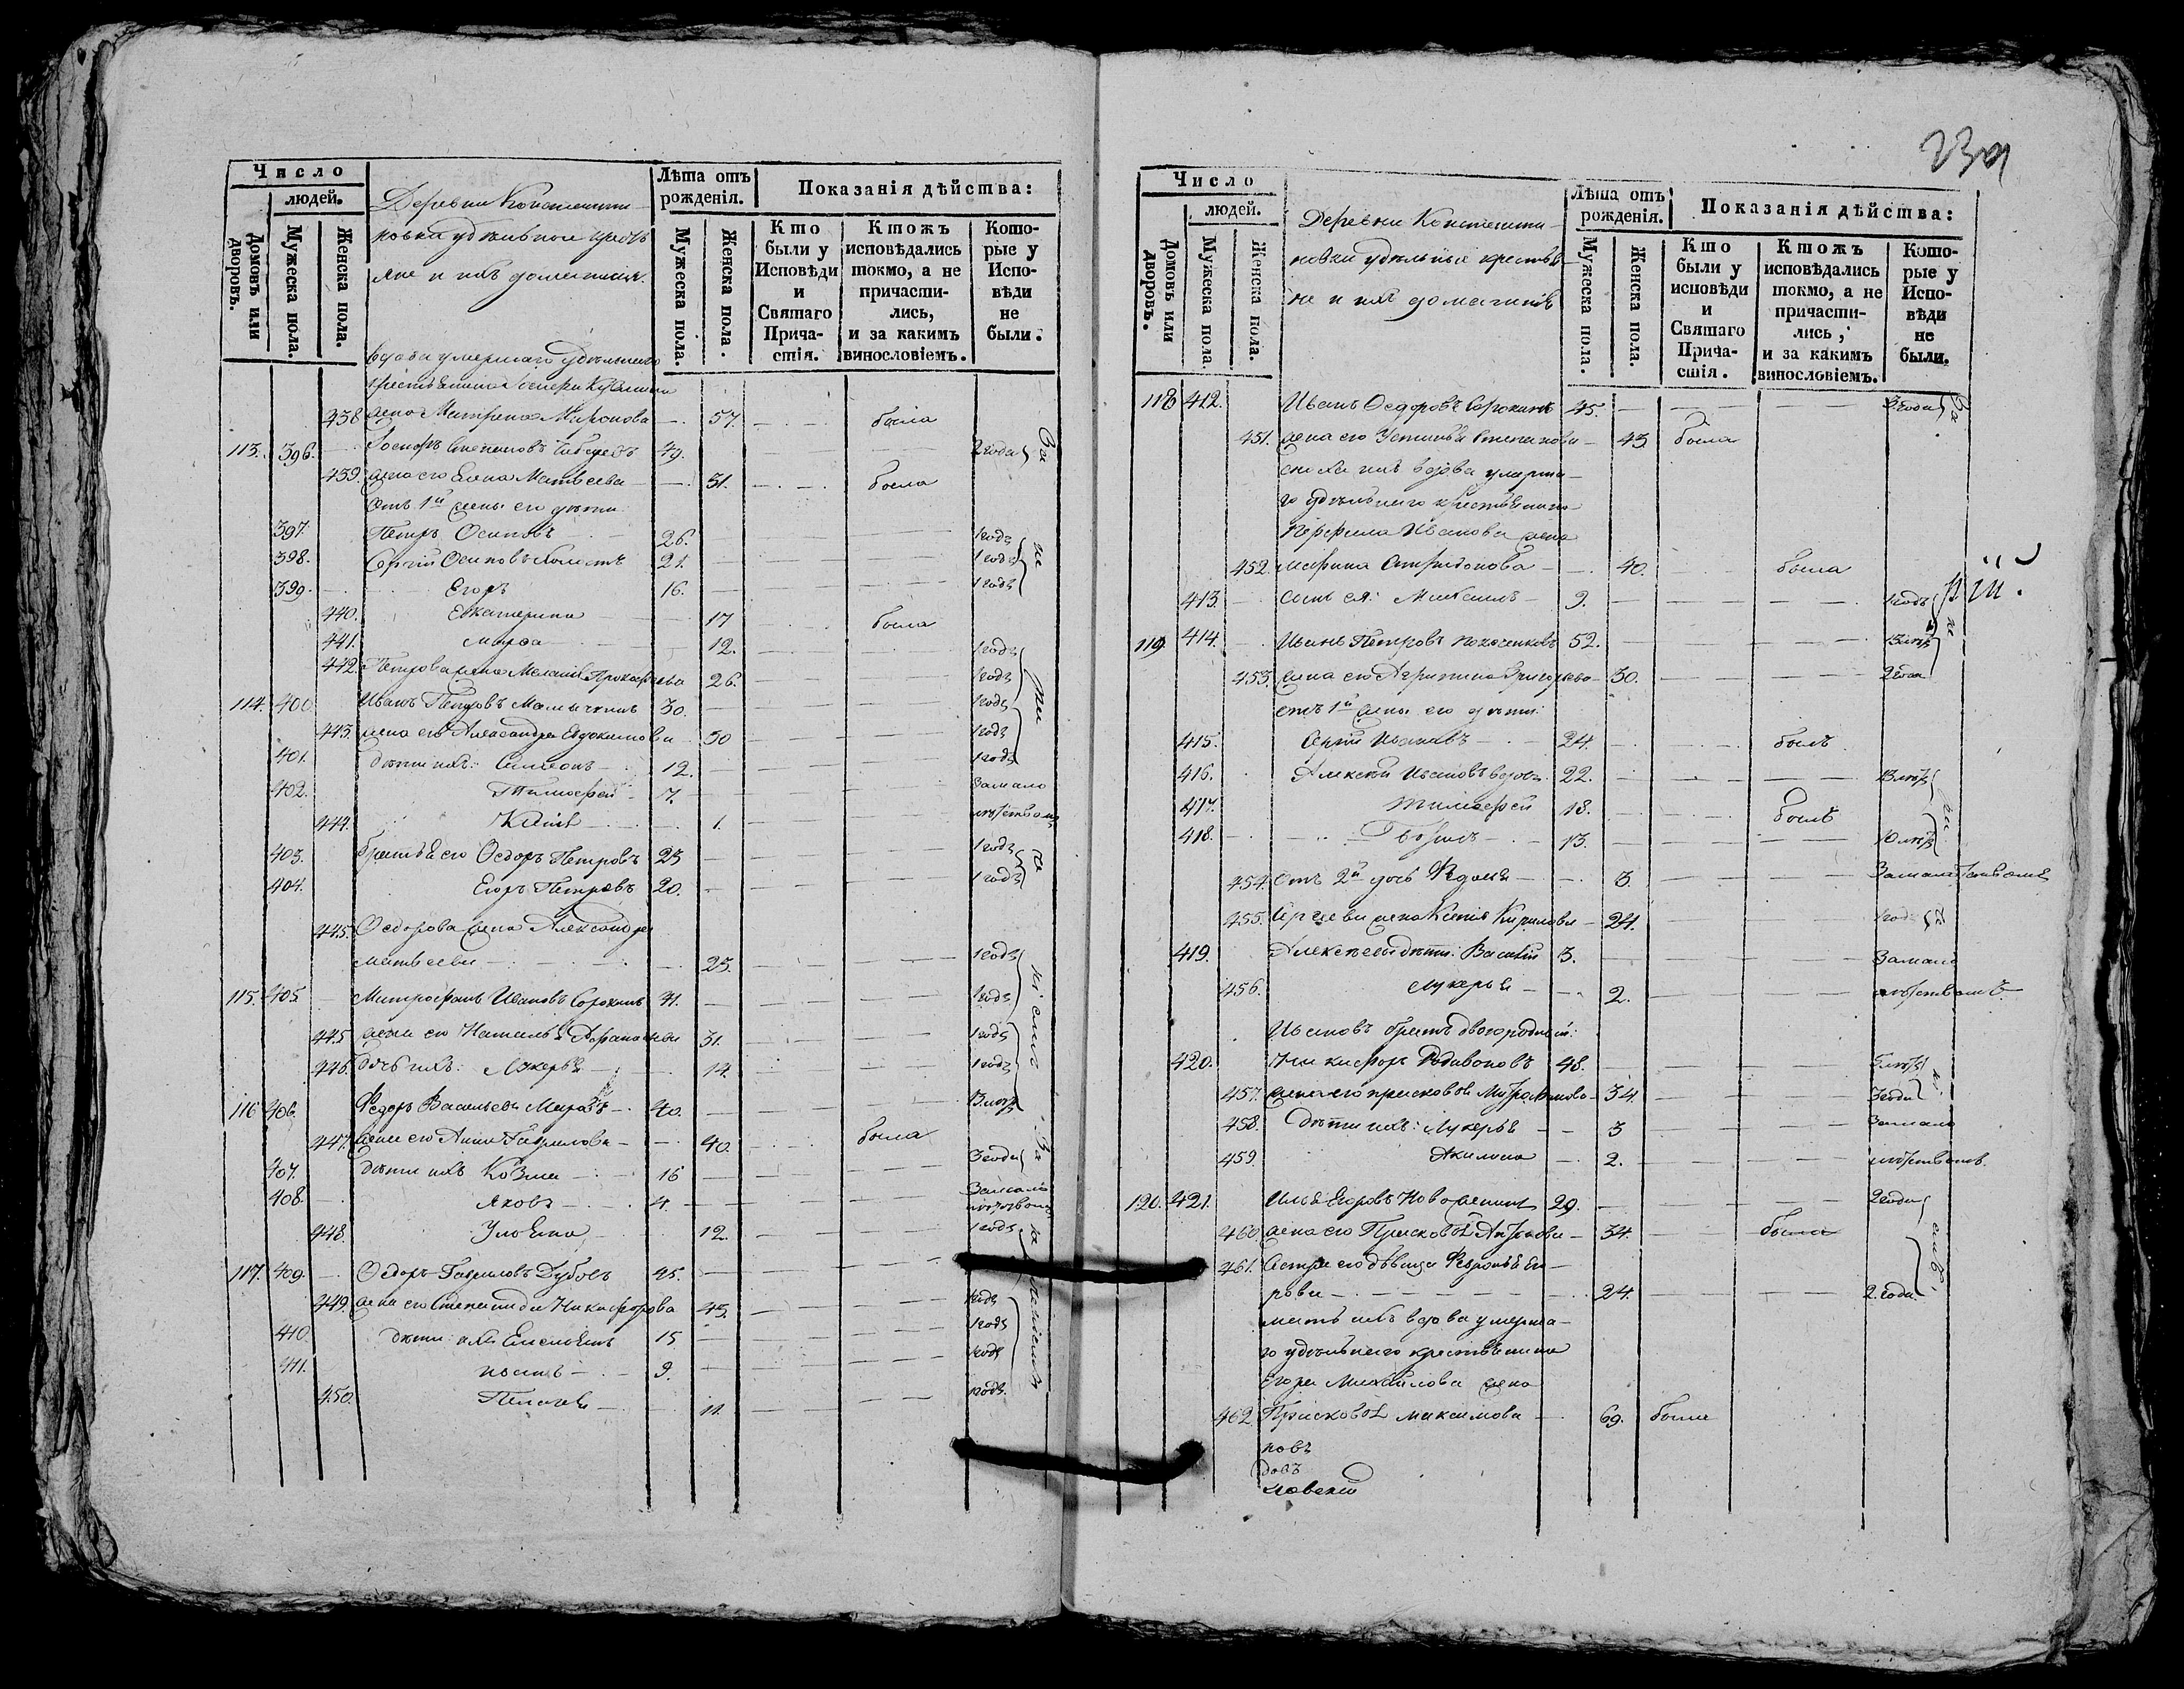 Число
людей.
Домовъ или дворовъ.
Мужеска пола.
Женска пола.
Деревни Константи-
новки удѣльные кресть
яне и ихъ домашнія
Лѣта отъ рожденія.
Мужеска пола.
Женска пола.
Показанія дѣйства:
Кто были у Исповѣди и Святаго Причастія.
Ктожъ исповѣдались токмо, а не причастились, и за какимъ винословіемъ.
Которые у Исповѣди не были.
вдова умершаго удѣльнаго
крестьянина
438 жена Матрена Миронова — 57. была
113. 396. Степановъ 49. 2 года
439. жена его Елена Матвеева — 51. была
отъ 1й жены его дѣти
397. Петръ Осиповъ 26. 1 годъ
398. Сергій Осиповъ холостъ 21. 1 годъ
399. Егоръ 16. 1 годъ
440. Екатерина 17 была
441. Марфа 12. 1 годъ
442. Петрова жена Меланія Прокофьева 26. 1 годъ
114. 400. Иванъ Петровъ 30. 1 годъ
443. жена его Александра Евдокимова 30 1 годъ
401. дѣти ихъ: Симеонъ 12. 1 годъ
402. Тимофей 7. За мало
444. 1. лѣтствомъ
403. братья его Ѳедоръ Петровъ 23 1 годъ
404. Егоръ Петровъ 20. 1 годъ
445. Ѳедорова жена Александра
Матвеева — 23. 1 годъ
115. 405 Митрофанъ Ивановъ Сорокинъ 41. 1 годъ
445 жена его Наталья Афанасьева 31. 1 годъ
446. дочь ихъ: Лукерья 14. 1 годъ
116 406. Федоръ Васильевъ 40. 13 лѣтъ
447. жена его Анна Гаврилова — 40. была
407. дѣти ихъ Козма 16 3 года
408. Яковъ 4. За мало
лѣтствомъ
448. Ульяна 12. 1 годъ
117. 409. Ѳедоръ Гавриловъ Дубовъ 45.
449. жена его Степанида Никифорова 45. 1 годъ
410. дѣти ихъ Емельянъ 15 1 годъ
411. Иванъ 9. 1 годъ
450. Пелагея 11. 1 годъ
Число
людей.
Домовъ или дворовъ.
Мужеска пола.
Женска пола.
Деревни Константи-
новки удѣльные крестья-
не и ихъ домашнія
Лѣта отъ рожденія.
Мужеска пола.
Женска пола.
Показанія дѣйства:
Кто были у исповѣди и Святаго Причастія.
Ктожъ исповѣдались токмо, а не причастились, и за какимъ винословіемъ.
Которые у Исповѣди не были.
118 412. Иванъ Ѳедоровъ Сорокинъ 45. 3 года
451. жена его Устинья Степанова — 43 была
сноха ихъ вдова умерша-
го удѣльнаго крестьянина
Перфила Иванова жена
452. Марина Спиридонова — 40. была
413. сынъ ея: Михаилъ — 9. 1 годъ
119. 414. Иванъ Петровъ 52. 13 лѣтъ
453. жена его Агрипина Григорьева — 30. 2 года
отъ 1й жены его дѣти:
415. Сергѣй Ивановъ — 24. былъ
416. Алексѣй Ивановъ вдовъ 22. 13 лѣтъ
417. Тимофей 18. былъ
418. 13. 10 лѣтъ
454. отъ 2й дочь Федосья — 3. За малолѣтствомъ
455. Сергеева жена Ксенія Кирилова — 24. 1 годъ
419. Алексеевы дѣти: Василій 3. За мало
456. Лукерья — 2. лѣтствомъ
Ивановъ братъ двоюродный:
420. Никифоръ Родивоновъ 48. 5 лѣтъ
457. жена его Прасковья Митрофанова — 34. 3 года
458. дѣти ихъ: Лукерья — 3 За мало
459. Акилина 2. лѣтствомъ
120. 421. Илья Егоровъ 29. 2 года
460. жена его Прасковья — 34. была
461. Сестра его дѣвица Февронья Его-
рова — 24. 2 года
мать ихъ вдова умерша-
го удѣльнаго крестьянина
Егора Михайлова жена
462 Прасковья Максимова — 69. была
новъ
довъ